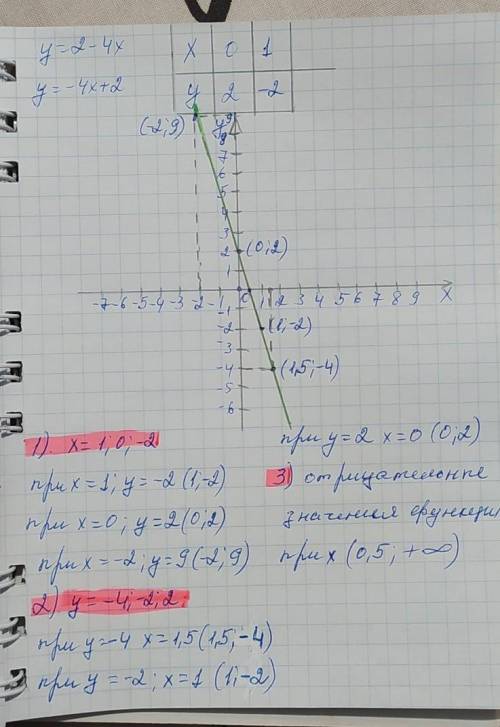 y=2-4x
x 0 1
y=-4x+2
y 2 -2
(-2;9)
y 9
8
7
6
5
4
3
2 (0;2)
1
-7 -6 -5 -4 -3 -2 -1 0 1 2 3 4 5 6 7 8 9 X
-1
-2 (1;-2)
-3
-4 (1,5;-4)
-5
-6
1). x=1;0;-2
при x=1; y=-2 (1;-2)
при x=0; y=2 (0;2)
при x=-2; y=9 (-2;9)
2) y=-4;-2;2;
при y=-4 x=1,5 (1,5;-4)
при y=-2; x=1 (1;-2)
при y=2 x=0 (0;2)
3) отрицательные
значения функции
при x (0,5; +∞)